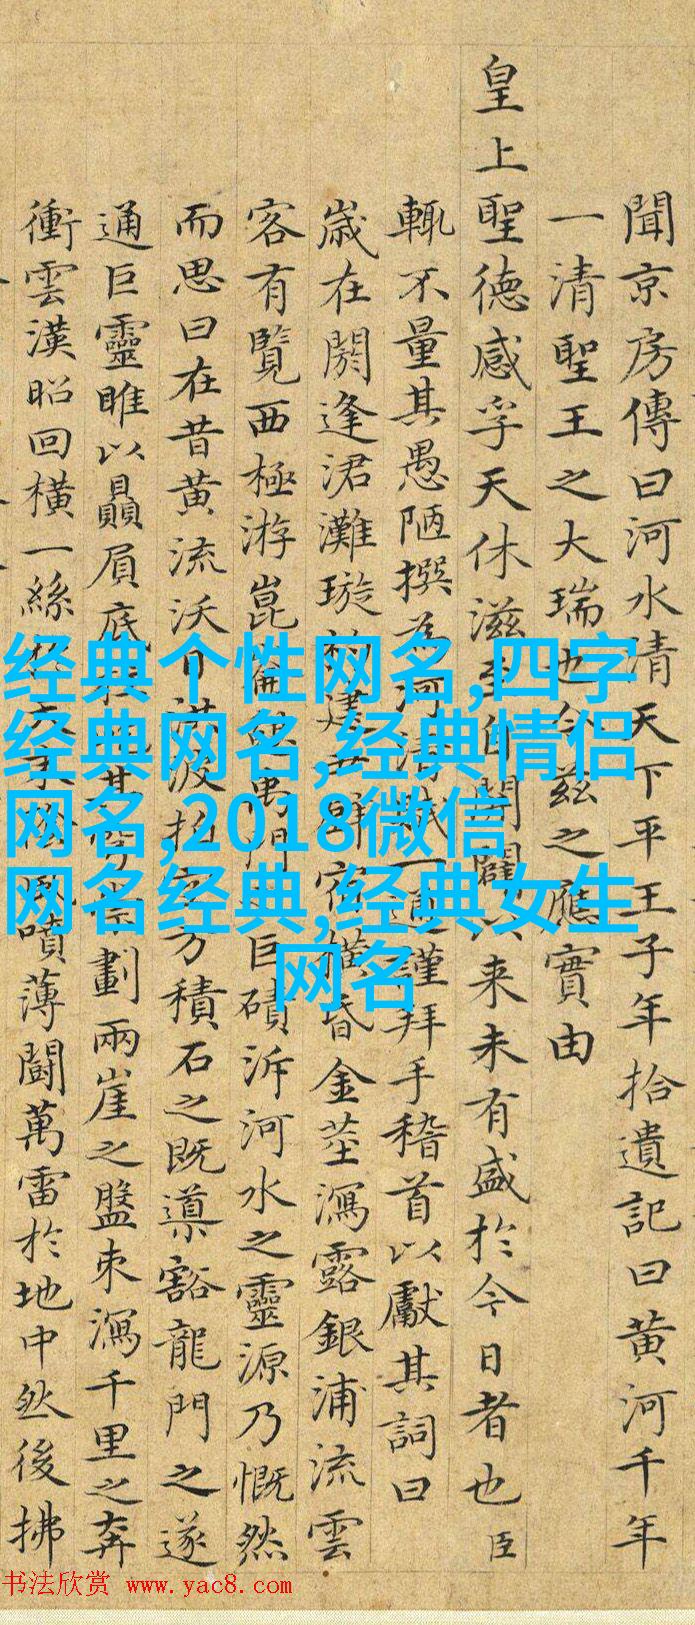 聞京房傳曰河水清天下平王子年拾遺記曰黃河千年
一清聖王之大瑞也今茲之應實由
皇上聖德感孚天休滋至自開闢以来未有盛於今日者也臣
輒不量其愚陋撰為河清賦一通謹拜手稽首以獻其詞曰
歲在閼逢涒灘璇杓建酉群宿橫昏金莖瀉露銀浦流雲
客有覽西極游崑崙禹門巨磧泝河水之靈源乃慨然
而思曰在昔黄流沃日洪波方積石之既導豁龍門之遂
通巨靈睢以贔屓底柱其劃兩崖之盤束瀉千里之奔
衝雲漢昭回橫一絲於天末噴薄鬪萬雷於地中然後拂
经典个性网名,四字
经典网名,经典情侣
网名,2018微信
网名经典,经典女生
网名
书法欣赏 www.yac8.com